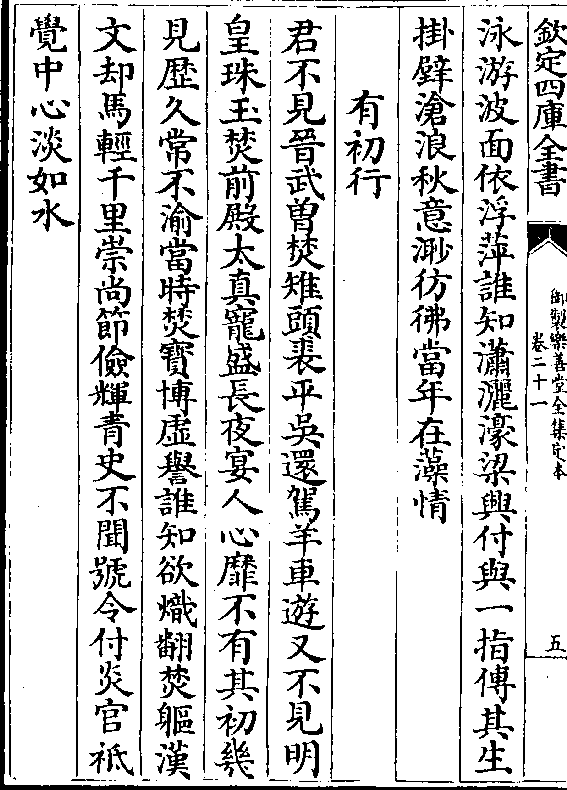 欽定四庫全書
御製樂善堂全集定本
卷二十一
五
泳游波面依浮萍誰知瀟灑濠梁興付與一指傳其生
掛壁滄浪秋意渺彷彿當年在藻情
有初行
君不見晉武曾焚雉頭裘平吳還駕羊車遊又不見明
皇珠玉焚前殿太真寵盛長夜宴人心靡不有其初幾
見歴久常不渝當時焚寶博虛譽誰知欲熾翻焚軀漢
文却馬輕千里崇尚節儉輝青史不聞號令付炎官祗
覺中心淡如水